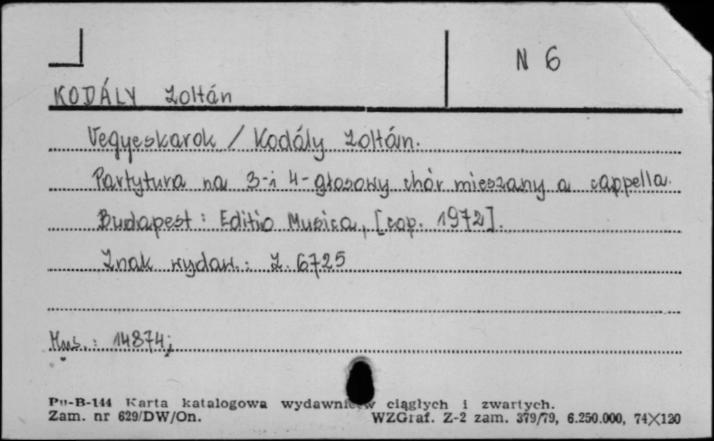 N 6
KODÁLY Zoltán
Vegyeskarok / Kodály Zoltán.
Partytura na 3-i 4-głosowy chór mieszany a cappella.
Budapest : Editio Musica, [cop. 1972].
Znak wydaw.: Z. 6725
Mus.: 14874;
Pu-B-144 Karta katalogowa wydawnictw ciągłych i zwartych.
Zam. nr 629/DW/On. WZGraf. Z-2 zam. 379/79, 6.250.000, 74×120